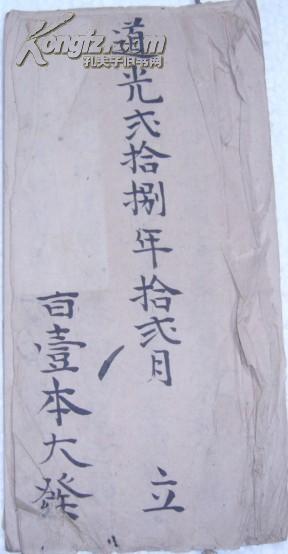 道光弍拾捌年拾弍月 立
百壹本大發
Kongfz.com
孔夫子旧书网